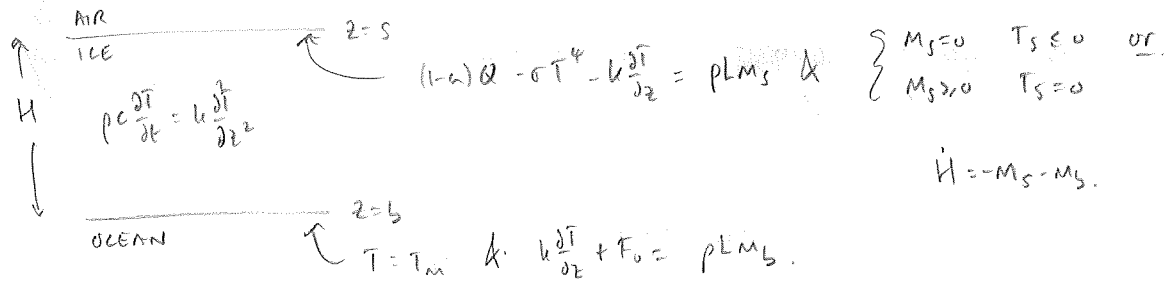 AIR
ICE
z=s
(1-a)Q - σT⁴ - k ∂T/∂z = ρLMₛ & { Mₛ=0 Tₛ≤0 or
Mₛ≥0 Tₛ=0
H
ρc ∂T/∂t = k ∂²T/∂z²
Ḣ = -Mₛ - M_b.
z=b
OCEAN
T=Tₘ & k ∂T/∂z + F₀ = ρLM_b.